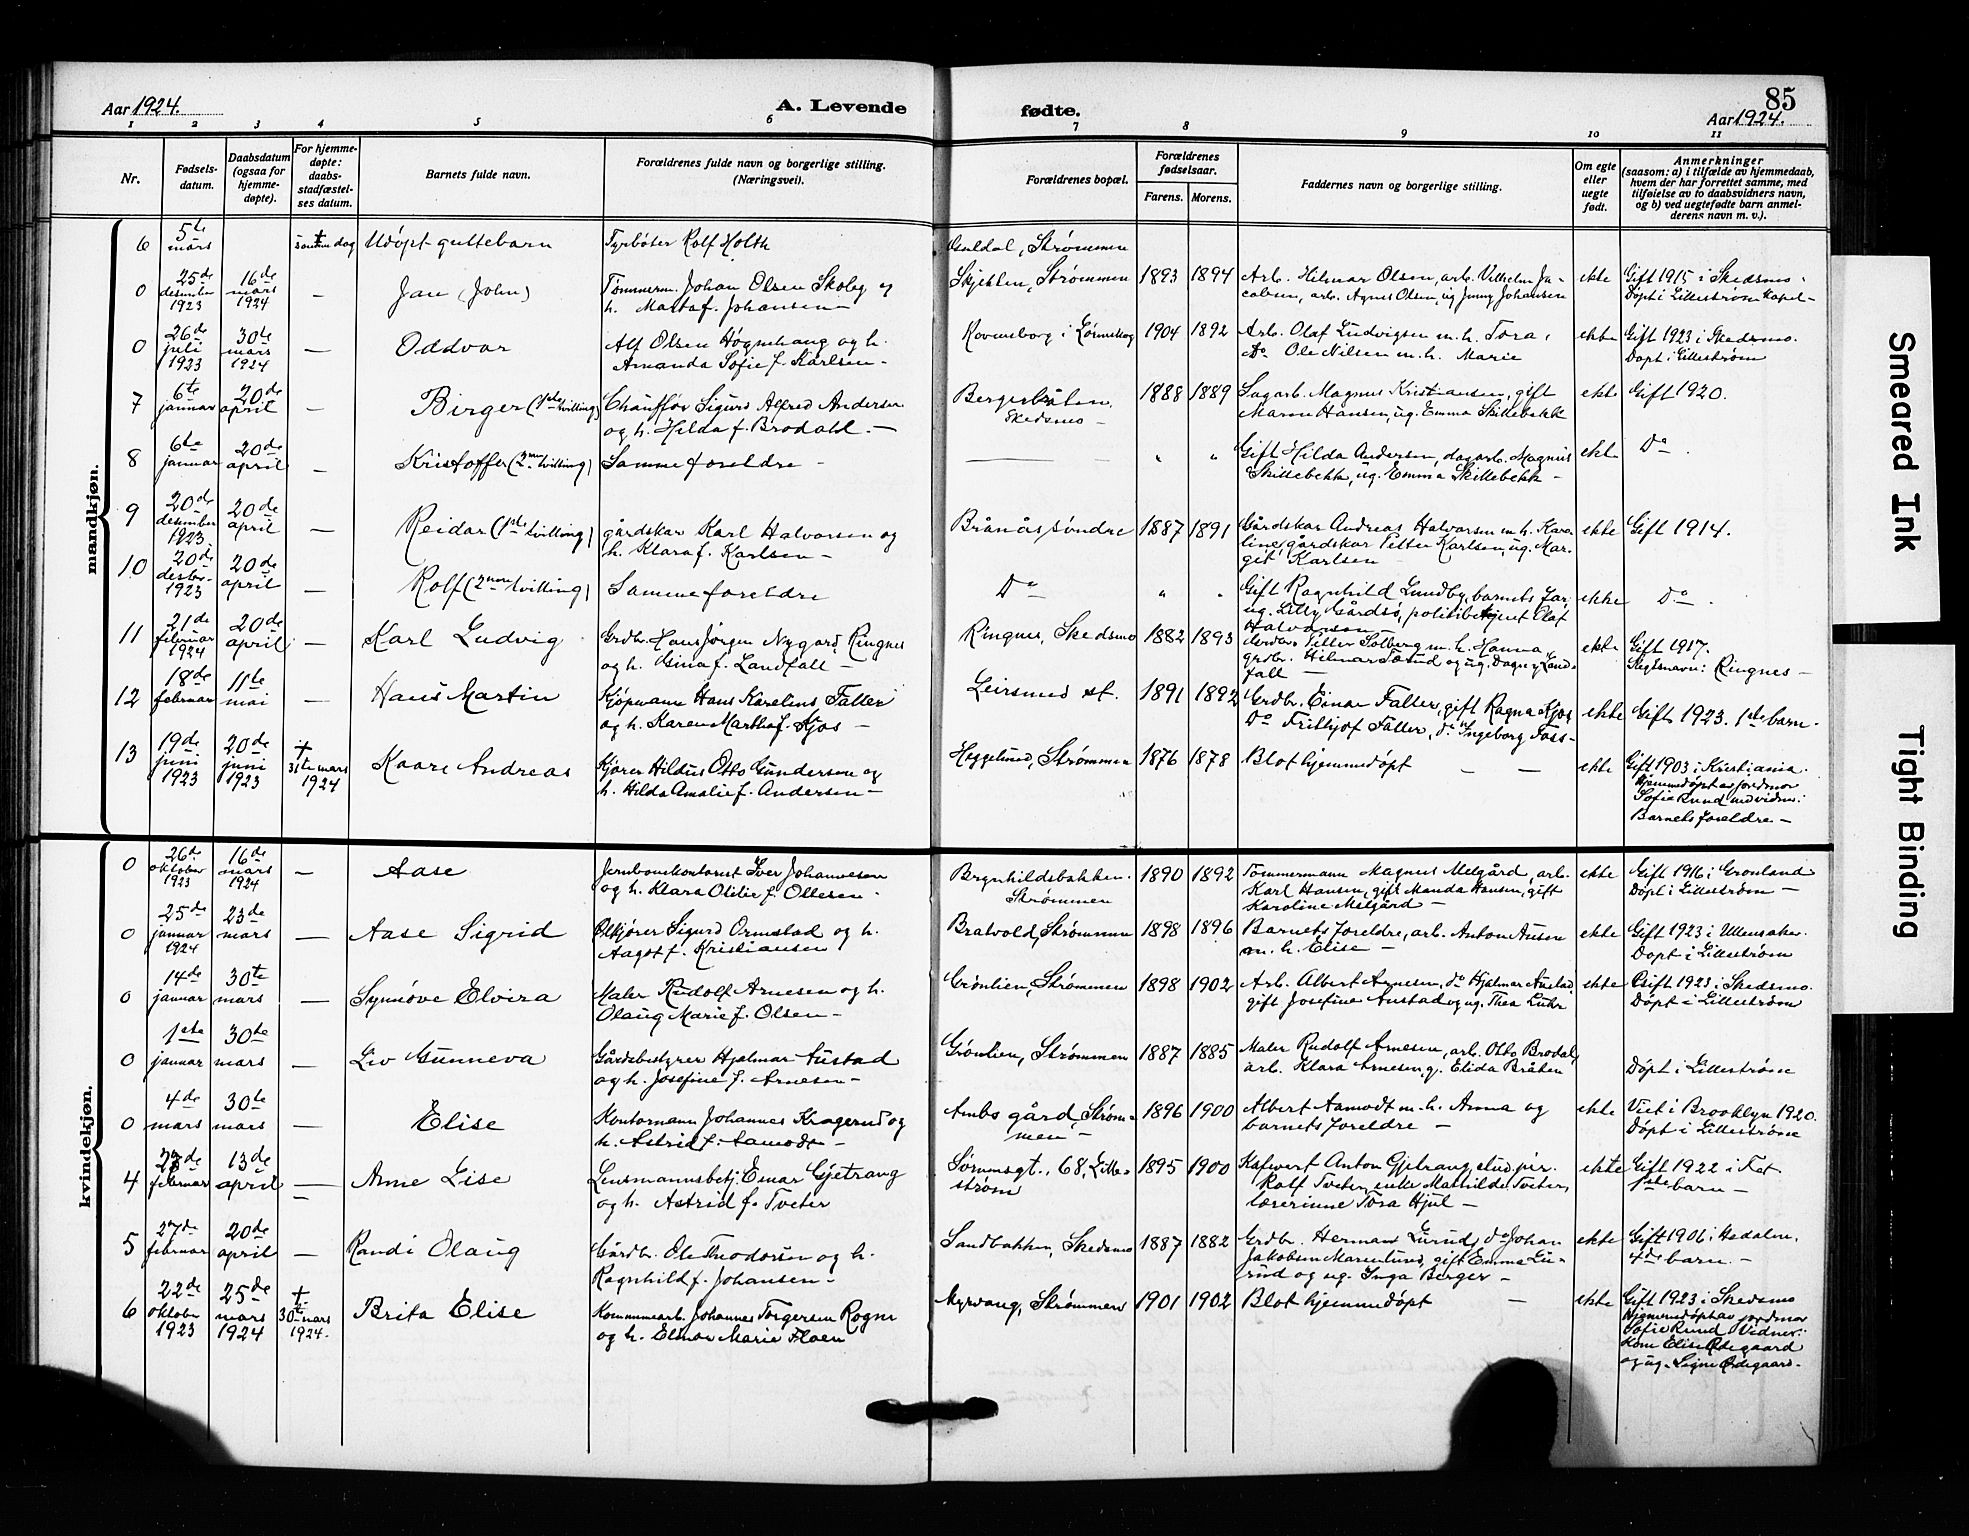 85
Aar 1924.
A. Levende
fødte.
Aar 1924.
1 2 3 4 5 6 7 8 9 10 11
Nr.
Fødsels-
datum.
Daabsdatum
(ogsaa for
hjemme-
døpte).
For hjemme-
døpte:
daabs-
stadfæstel-
ses datum.
Barnets fulde navn.
Forældrenes fulde navn og borgerlige stilling.
(Næringsvei).
Forældrenes bopæl.
Forældrenes
fødselsaar.
Farens. Morens.
Faddernes navn og borgerlige stilling.
Om egte
eller
uegte
født.
Anmerkninger
(saasom: a) i tilfælde av hjemmedaab,
hvem der har forrettet samme, med
tilføielse av to daabsvidners navn,
og b) ved uegtefødte barn anmel-
derens navn m. v.).
mandkjøn.
6
5te
mars
+
samme dag
Udøpt guttebarn
Fyrbøter Rolf Holth
Strømmen
0
25de
desember
1923
16de
mars
1924
—
Jan (John)
Tømmerm. Johan Olsen Skoby og
h. Marta f. Johansen —
Skjetten, Strømmen
1893 1894
Arb. Hilmar Olsen, arb. Vilhelm Ja-
cobsen, arb. Agnes Olsen, ug Jenny Johansen
ekte
Gift 1915 i Skedsmo.
Døpt i Lillestrøm Kapel—
0
26de
juli
1923
30te
mars
1924
—
Oddvar
Alf Olsen Høgnehaug og h.
Amanda Sofie f. Karlsen—
Ravensborg i Lørenskog
1904 1892
Arb. Olaf Ludvigsen m. h. Tora,
Do Ole Nilsen m. h. Marie
ekte
Gift 1923 i Skedsmo.
Døpt i Lillestrøm
7
6te
januar
20de
april
—
Birger (1ste tvilling)
Chauffør Sigurd Alfred Andersen
og h. Hilda f. Brodahl. —
Skedsmo —
1888 1889
Sagarb. Magnus Kristiansen, gift
Maren Hansen, ug. Emma Skillebekk
ekte
Gift 1920.
8
6te
januar
20de
april
—
Kristoffer (2nen tvilling)
Samme foreldre —
— " "
Gift Hilda Andersen, dagarb. Magnus
Skillebekk, ug. Emma Skillebekk —
ekte
Do.
9
20de
desember
1923
20de
april
—
Reidar (1ste tvilling)
gårdskar Karl Halvorsen og
h. Klara f. Karlsen —
Brånås søndre
1887 1891
Gårdskar Andreas Halvorsen m. h. Karo-
line, gårdskar Petter Karlsen, ug. Mar-
git Karlsen —
ekte
Gift 1914.
10
20de
desbr.
1923
20de
april
—
Rolf (2nen tvilling)
Samme foreldre
Do " "
Gift Ragnhild Lundby, barnets far,
ug. Lilly Gårdsø, politibetjent Olaf
Halvorsen
ekte
Do.
11
21de
februar
1924
20de
april
—
Karl Ludvig
Grdbr. Hans Jørgen Nygard, Ringnes
og h. Gina f. Landfall —
Ringnes, Skedsmo
1882 1893
Petter Solberg m. h. Hanna,
grdbr. Hilmar og ug. Dagny Land-
fall —
ekte
Gift 1917.
Slegtsnavn: Ringnes —
12
18de
februar
11te
mai
—
Hans Martin
Kjøpmann Hans Karelius Faller
og h. Karen Martha f. Kjos —
Leirsund st.
1891 1892
Grdbr. Einar Faller, gift Ragna Kjos,
Do Frithjof Faller, do Ingeborg Foss—
ekte
Gift 1923. 1ste barn.
13
19de
juni
1923
20de
juni
1923
+
31te mars
1924
Kaare Andreas
Kjører Hildus Otto Gundersen og
h. Hilda Amalie f. Andersen —
Heggelund, Strømmen
1876 1878
Blot hjemmedøpt — —
ekte
Gift 1903 i Kristiania.
Hjemmedøpt av jordmor
Sofie Rund med vidner:
Barnets foreldre —
kvindekjøn.
0
26de
oktober
1923
16de
mars
1924
—
Aase
Jernbanekontorist Iver Johannesen
og h. Klara Otilie f. Ottesen —
Brynhildsbakken.
Strømmen
1890 1892
Tømmermann Magnus Melgård, arb.
Karl Hansen, gift Manda Hansen, gift
Karoline Melgård —
ekte
Gift 1916 i Grønland
Døpt i Lillestrøm —
0
25de
januar
1924
23de
mars
—
Aase Sigrid
Ølkjører Sigurd Ormstad og h.
Aagot f. Kristiansen
Bratvold, Strømmen
1898 1896
Barnets foreldre, arb. Anton
m. h. Elise —
ekte
Gift 1923 i Ullensaker.
Døpt i Lillestrøm
0
14de
januar
30te
mars
—
Synnøve Elvira
Maler Rudolf Arnesen og h.
Olaug Marie f. Olsen —
Grønlien, Strømmen
1898 1902
Arb. Albert Arnesen, do Hjalmar Austad,
gift Josefine Austad og ug. Thea Luhr
ekte
Gift 1923 i Skedsmo.
Døpt i Lillestrøm
0
1ste
januar
30te
mars
—
Liv Gunneva
Gårdsbestyrer Hjalmar Austad
og h. Josefine f. Arnesen —
Grønlien, Strømmen
1887 1885
Maler Rudolf Arnesen, arb. Otto Brodal,
arb. Klara Arnesen, g. Elida Bråten
Døpt i Lillestrøm
0
4de
mars
30te
mars
—
Elise
Kontormann Johannes Kragerud og
h. Astrid f. Aamodt —
Ambs gård, Strøm-
men —
1896 1900
Albert Aamodt m. h. Anna og
barnets foreldre —
ekte
Viet i Brooklyn 1920.
Døpt i Lillestrøm
4
23de
februar
13de
april
—
Anne Lise
Lensmannsbetj. Einar Gjetrang
og h. Astrid f. Tveter
Sørumsgt. 68, Lille-
strøm
1895 1900
Anton Gjetrang, stud. jur.
Rolf Tveter, enke Mathilde Tveter,
lærerinne Tora Hjul —
ekte
Gift 1922 i Fet
1ste barn —
5
27de
februar
20de
april
—
Randi Olaug
Gårdbr. Ole Theodorsen og h.
Ragnhild f. Johansen —
Sandbakken, Skedsmo
1887 1882
Grdbr. Herman Lurud, do Johan
Jakobsen Marenlund, gift Emma Lu-
rud og ug. Inga Berger —
ekte
Gift 1906 i Hedalen.
4de barn. —
6
22de
oktober
1923
25de
mars
1924
+
30te mars
1924.
Brita Elise
Kommunearb. Johannes Torgersen Rogne
og h. Elmor Marie Floen
Myrvang, Strømmen
1901 1902
Blot hjemmedøpt —
ekte
Gift 1923 i Skedsmo
Hjemmedøpt av jordmor
Sofie Rund Vidner:
Kone Elise Ødegaard
og ug. Signe Ødegaard.
Smeared Ink
Tight Binding